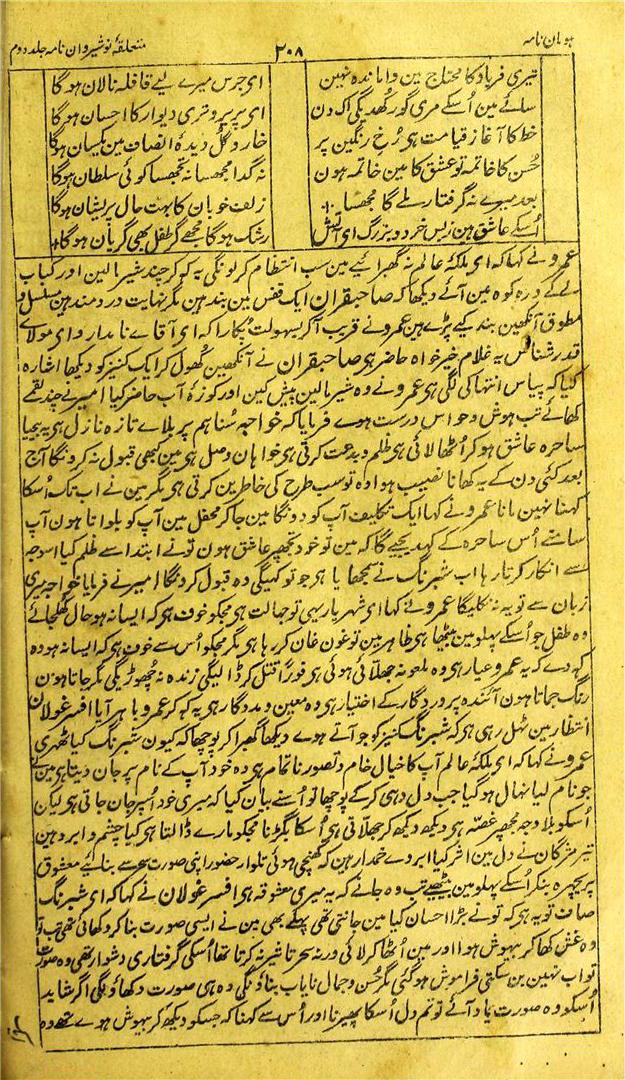 ہومان نامہ
۲۰۸
متعلقۂ نوشیروان نامہ جلد دوم
تیری فریاد کا محتاج مین واماندہ نہین
ای جرس میرے لیے قافلہ نالان ہوگا
سائے مین اُسکے مری گور کھدیگی اک دن
ای پریرو تری دیوار کا احسان ہوگا
خط کا آغاز قیامت ہی رُخ رنگین پر
خار و گل دیدۂ انصاف مین یکسان ہوگا
حُسن کا خاتمہ تو عشق کا مین خاتمہ ہون
نہ گدا مجھسا نہ تجھسا کوئی سلطان ہوگا
بعد میرے نہ گرفتار ملے گا مجھسا
زلف خوبان کا بہت حال پریشان ہوگا
اُسکے عاشق ہین بس خرد و بزرگ ای آتش
رشک ہوگا مجھے گر طفل بھی گریان ہوگا
عمرو نے کہا کہ ای ملکۂ عالم نہ گھبرائیے مین سب انتظام کر لونگی یہ کہکر چند شیرمالین اور کباب
لے کے درہ کوہ مین آئے دیکھا کہ صاحبقران ایک قفس مین بند ہین مگر نہایت دردمند ہین مسلسل و
مطوق آنکھین بند کیے پڑے ہین عمرو نے قریب آکر بسہولت پکارا کہ ای آقاے نامدار و ای مولاے
قدرشناس یہ غلام خیرخواہ حاضر ہی صاحبقران نے آنکھین کھول کر ایک کنیز کو دیکھا اشارہ
کیا کہ پیاس انتہا کی لگی ہی عمرو نے وہ شیرمالین پیش کین اور کوزۂ آب حاضر کیا امیر نے چند لقمے
کھائے تب ہوش و حواس درست ہوے فرمایا کہ خواجہ سُنا ہم پر بلاے تازہ نازل ہی یہ بیحیا
ساحرہ عاشق ہوکر اُٹھا لائی ہی ظلم و بدعت کرتی ہی خواہان وصل ہی مین کبھی قبول نہ کرونگا آج
بعد کئی دن کے یہ کھانا نصیب ہوا وہ تو سب طرح کی خاطرین کرتی ہی مگر مین نے اب تک اُسکا
کہنا نہین مانا عمرو نے کہا ایک تکلیف آپ کو دونگا مین جاکر محفل مین آپ کو بلواتا ہون آپ
سامنے اُس ساحرہ کے کہدیجیے گا کہ مین تو خود تجھپر عاشق ہون تو نے ابتدا سے ظلم کیا اسوجہ
سے انکار کرتا رہا اب شبرنگ نے سمجھایا ہی جو تو کہیگی وہ قبول کرونگا امیر نے فرمایا خواجہ میری
زبان سے تو یہ نہ نکلیگا عمرو نے کہا ای شہریار یہی تو جہالت ہی مجکو خوف ہی کہ ایسا نہو حال کھلجائے
وہ طفل جو اُسکے پہلو مین بیٹھا ہی ظاہر مین تو غون غان کر رہا ہی مگر مجکو اُس سے خوف ہی کہ ایسا نہو وہ
کہدے کہ یہ عمرو عیار ہی وہ ملعونہ جھلّائی ہوئی ہی فوراً قتل کر ڈالیگی زندہ نہ چھوڑیگی مگر جاتا ہون
رنگ جماتا ہون آئندہ پروردگار کے اختیار ہی وہ معین و مددگار ہی یہ کہکر عمرو باہر آیا افسر غولان
انتظار مین ٹہل رہی ہی کہ شبرنگ کنیز کو جو آتے ہوے دیکھا گھبراکر پوچھا کہ کیون شبرنگ کیا ٹھہری
عمرو نے کہا کہ ای ملکۂ عالم آپ کا خیال خام و تصور ناتمام ہی وہ خود آپ کے نام پر جان دیتا ہی مین نے
جو نام لیا نہال ہوگیا جب دل دہی کرکے پوچھا تو اُسنے بیان کیا کہ میری خود اُسپر جان جاتی ہی لیکن
اُسکو بلا وجہ مجھپر غصّہ ہی دیکھ دیکھ کر جھلّاتی ہی اُسکا بگڑنا مجکو مارے ڈالتا ہی کیا چشم و ابرو ہین
تیر مژگان نے دل مین اثر کیا ابروے خمدار ہین کہ کھنچی ہوئی تلوار حضور اپنی صورت سحر سے بنائیے معشوق
پریچہرہ بنکر اُسکے پہلو مین بیٹھیے تب وہ جانے کہ یہ میری معشوقہ ہی افسر غولان نے کہا کہ ای شبرنگ
صاف تو یہ ہی کہ تو نے بڑا احسان کیا مین جانتی تھی پہلے بھی مین نے ایسی صورت بناکر دکھائی تھی تب تو
وہ غش کھاکر بیہوش ہوا اور مین اُٹھاکر لائی ورنہ سحر تاثیر نہ کرتا تھا اُسکی گرفتاری دشوار تھی وہ صورت
تو اب نہین بن سکتی فراموش ہوگئی مگر حُسن و جمال نایاب بناؤنگی وہی صورت دکھاؤنگی اگر شاید
اُسکو وہ صورت یاد آئے تو تم دل اُسکا پھیرنا اور اُس سے کہنا کہ جسکو دیکھ کر بیہوش ہوے تھے وہ